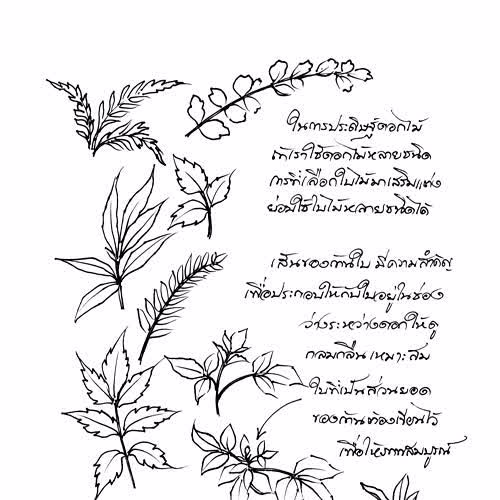 ในการประดิษฐ์ดอกไม้
ถ้าเราใช้ดอกไม้หลายชนิด
การที่เลือกใบไม้มาเสริมแต่ง
ย่อมใช้ใบไม้หลายชนิดได้
เส้นของก้านใบ มีความสำคัญ
เพื่อประกอบให้กับใบอยู่ในช่อง
ว่างระหว่างดอกให้ดู
กลมกลืนเหมาะสม
ใบที่เป็นส่วนยอด
ของก้านต้องเขียนไว้
เพื่อให้ภาพสมบูรณ์